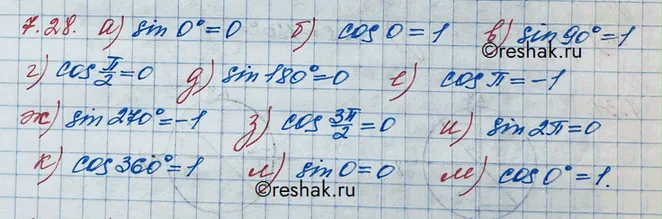 7.28. а) sin 0° = 0 б) cos 0 = 1 в) sin 90° = 1
г) cos π/2 = 0 д) sin 180° = 0 е) cos π = -1
ж) sin 270° = -1 з) cos 3π/2 = 0 и) sin 2π = 0
к) cos 360° = 1 л) sin 0 = 0 м) cos 0° = 1.
©reshak.ru
©reshak.ru
©reshak.ru